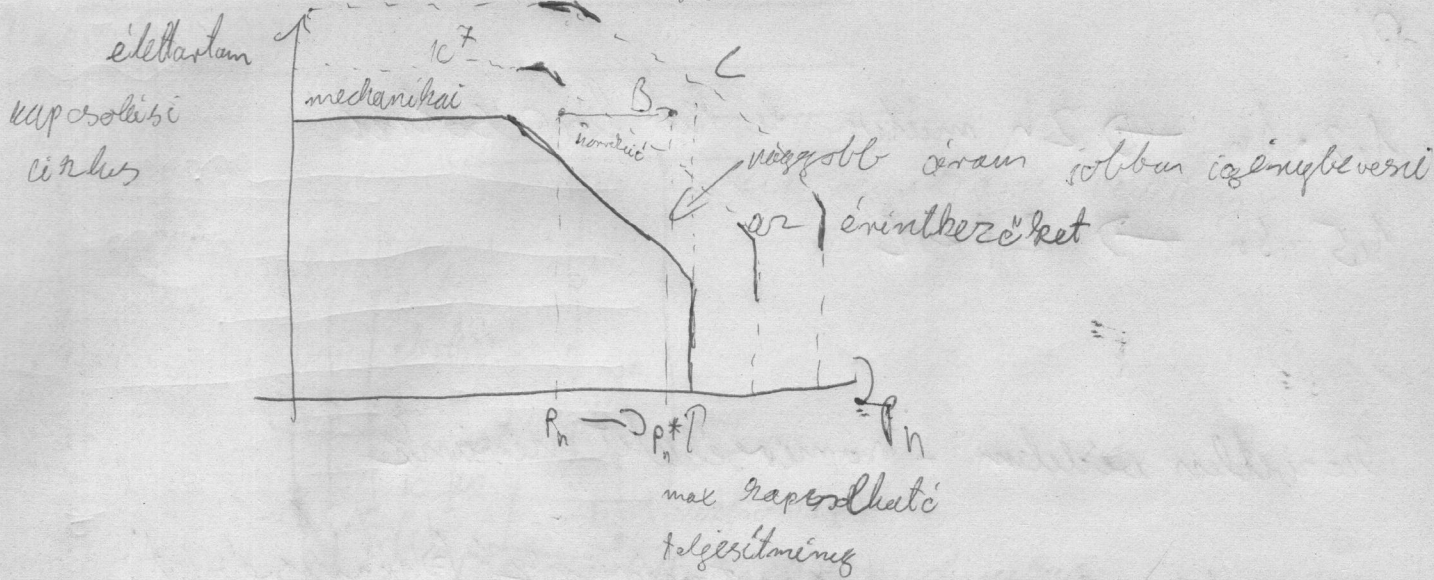 élettartam
kapcsolási
ciklus
10^7
mechanikai
B
C
nagyobb áram jobban igénybeveszi
az érintkezőket
P_n → P_n* ↑
P_n
max kapcsolható
teljesítmény